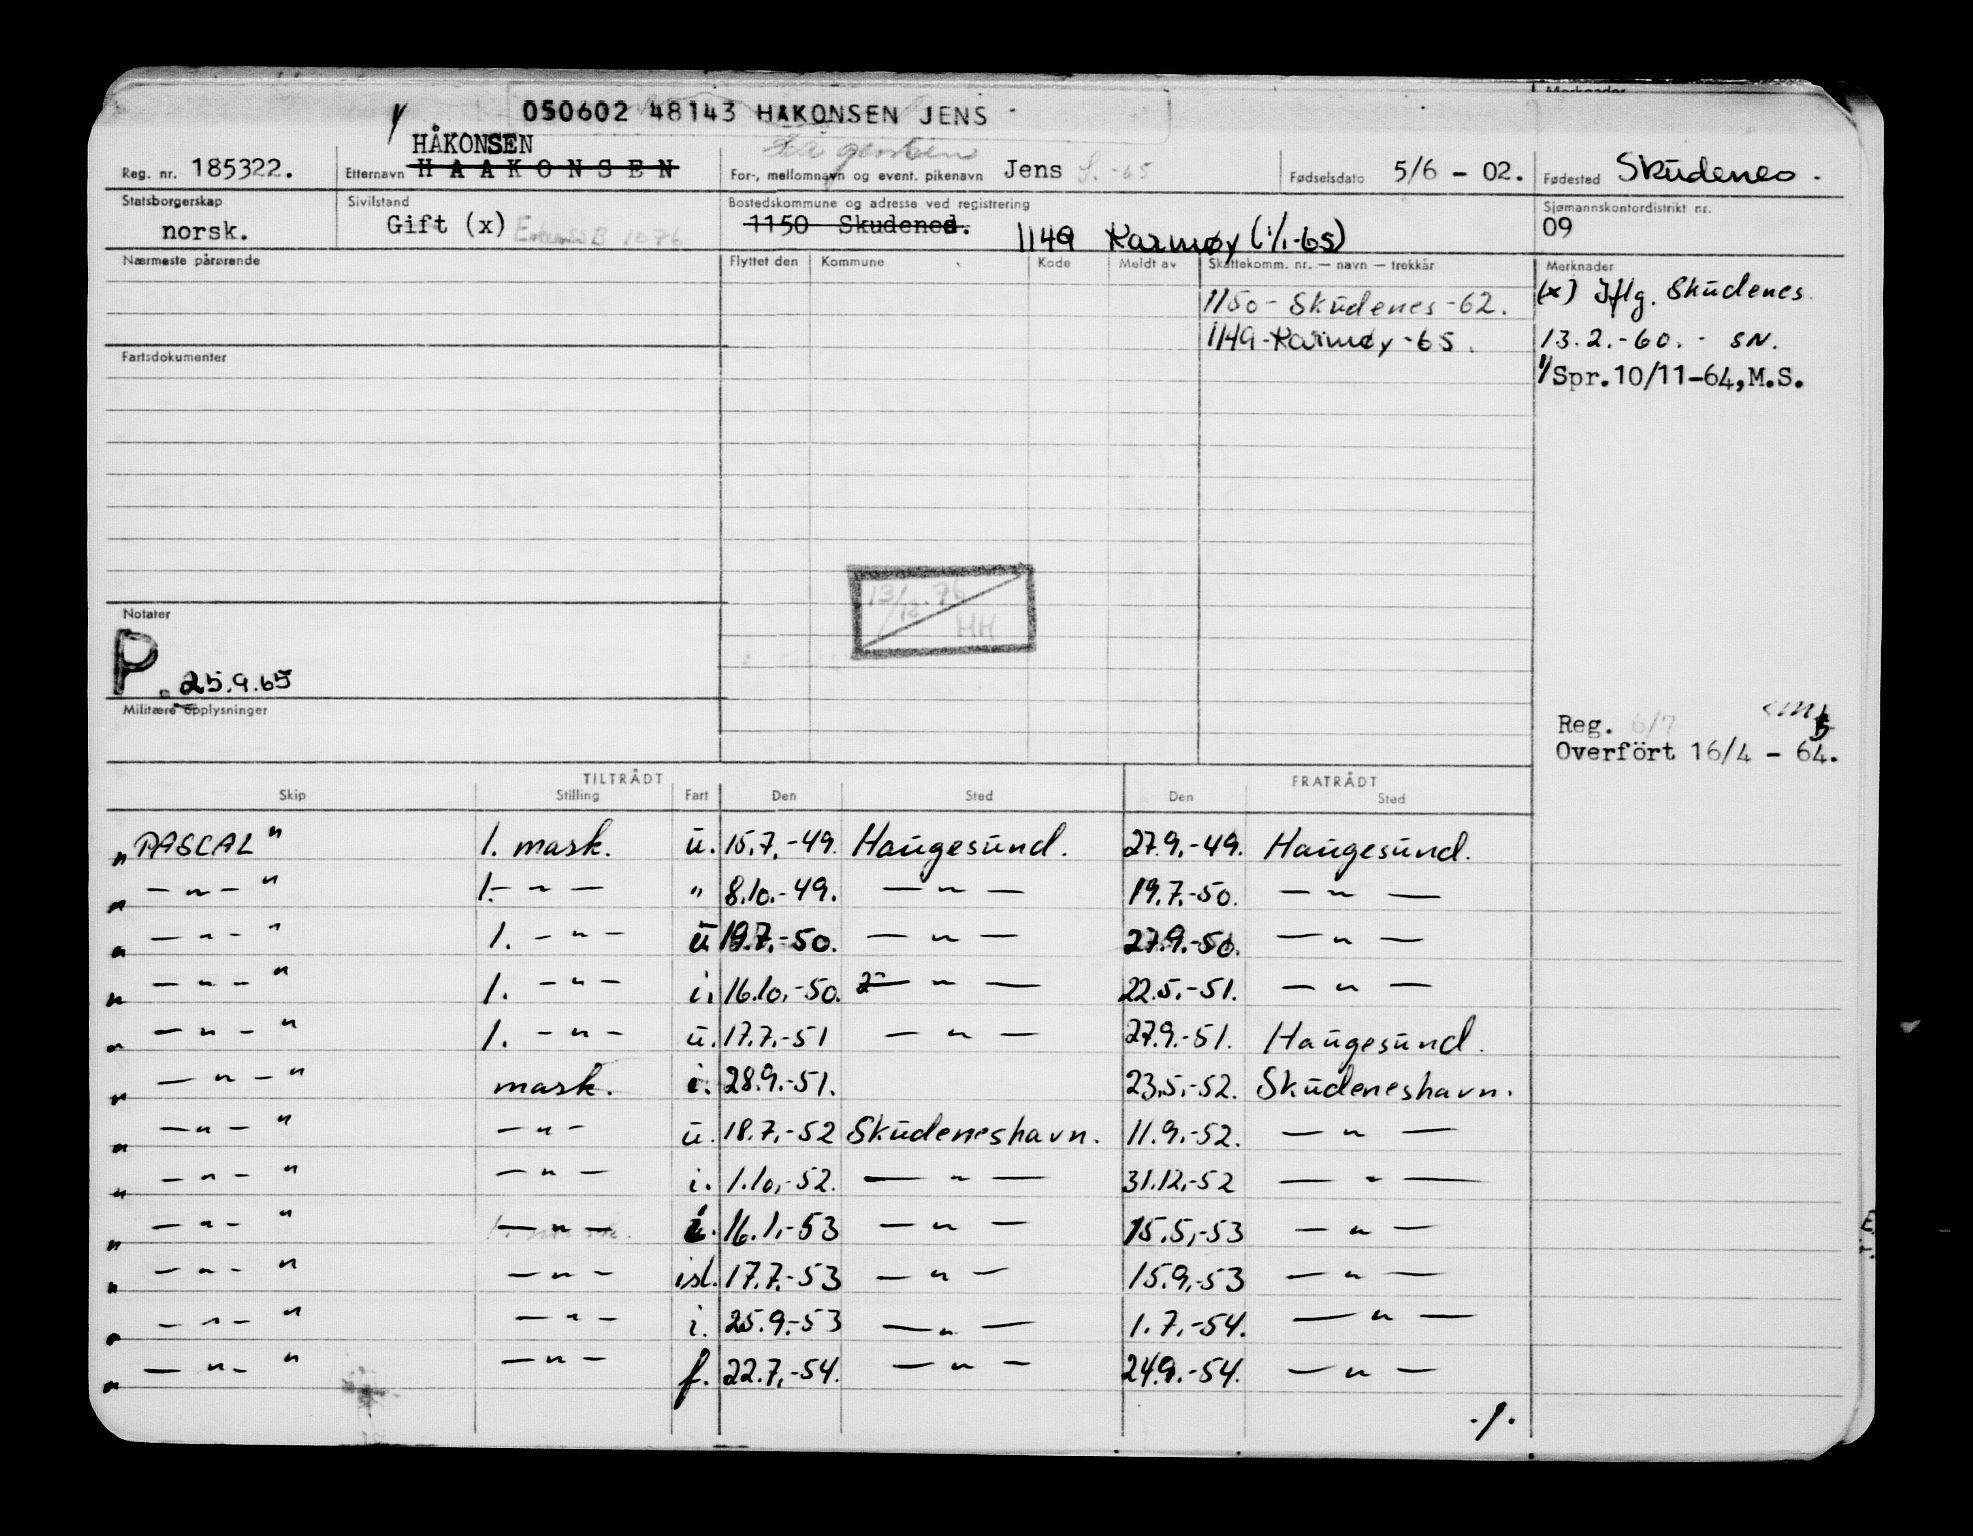 Merknader
050602 48143 HAKONSEN JENS
HÅKONSEN
Reg. nr. 185322. Etternavn HAAKONSEN For-, mellomnavn og event. pikenavn Jens Fødselsdato 5/6 - 02. Fødested Skudenes.
Statsborgerskap Sivilstand Bostedskommune og adresse ved registrering Sjømannskontordistrikt nr.
norsk. Gift (x) 1150 Skudenes. 1149 Karmøy (1/1-65) 09
Nærmeste pårørende Flyttet den Kommune Kode Meldt av Skattekomm. nr. — navn — trekkår Merknader
1150 - Skudenes - 62. (x) Iflg. Skudenes
1149 - Karmøy - 65. 13.2.-60. - SN.
Fartsdokumenter
1/Spr.10/11-64,M.S.
13/12.76 HH
Notater
P. 25.9.65
Militære opplysninger
Reg. 6/7
Overfört 16/4 - 64.
TILTRÅDT FRATRÅDT
Skip Stilling Fart Den Sted Den Sted
"PASCAL" 1. mask. u. 15.7.-49. Haugesund. 27.9.-49. Haugesund.
" — " — " 1. — " — " 8.10.-49. — " — 19.7.-50. — " —
" — " — " 1. — " — u 19.7.-50. — " — 27.9.-50. — " —
" — " — " 1. — " — i. 16.10.-50. — " — 22.5.-51. — " —
" — " — " 1. — " — u. 17.7.-51 — " — 27.9.-51. Haugesund.
" — " — " mask. i. 28.9.-51. 23.5.-52. Skudeneshavn.
" — " — " — " — u. 18.7.-52 Skudeneshavn. 11.9.-52. — " —
" — " — " — " — i. 1.10.-52. — " — 31.12.-52 — " —
" — " — " — " — i. 16.1.-53 — " — 15.5.-53 — " —
" — " — " — " — isl. 17.7.-53 — " — 15.9.-53 — " —
" — " — " — " — i. 25.9.-53 — " — 1.7.-54. — " —
" — " — " — " — f. 22.7.-54. — " — 24.9.-54. — " —
./.